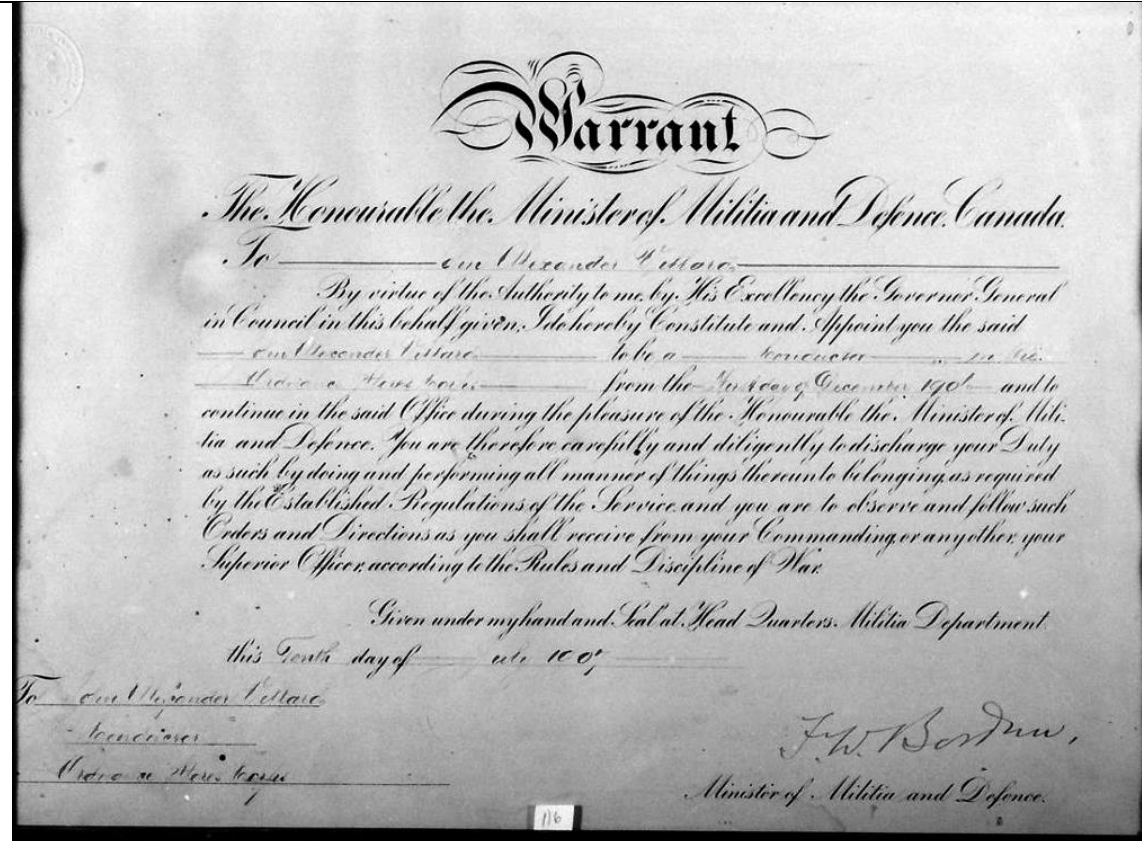 Warrant
The Honourable the Minister of Militia and Defence, Canada.
To Alexander
By virtue of the Authority to me, by His Excellency the Governor General
in Council in this behalf given, I do hereby Constitute and Appoint you the said
Alexander to be a Conductor in the
Ordnance Stores Corps from the First day of December, 190 and to
continue in the said Office during the pleasure of the Honourable the Minister of Mili-
tia and Defence. You are therefore carefully and diligently to discharge your Duty
as such by doing and performing all manner of things thereunto belonging, as required
by the Established Regulations of the Service, and you are to observe and follow such
Orders and Directions as you shall receive from your Commanding, or any other, your
Superior Officer, according to the Rules and Discipline of War.
Given under my hand and Seal at Head Quarters, Militia Department.
this Tenth day of
To Alexander
Conductor
Ordnance Stores Corps
F. W. Borden,
Minister of Militia and Defence.
116